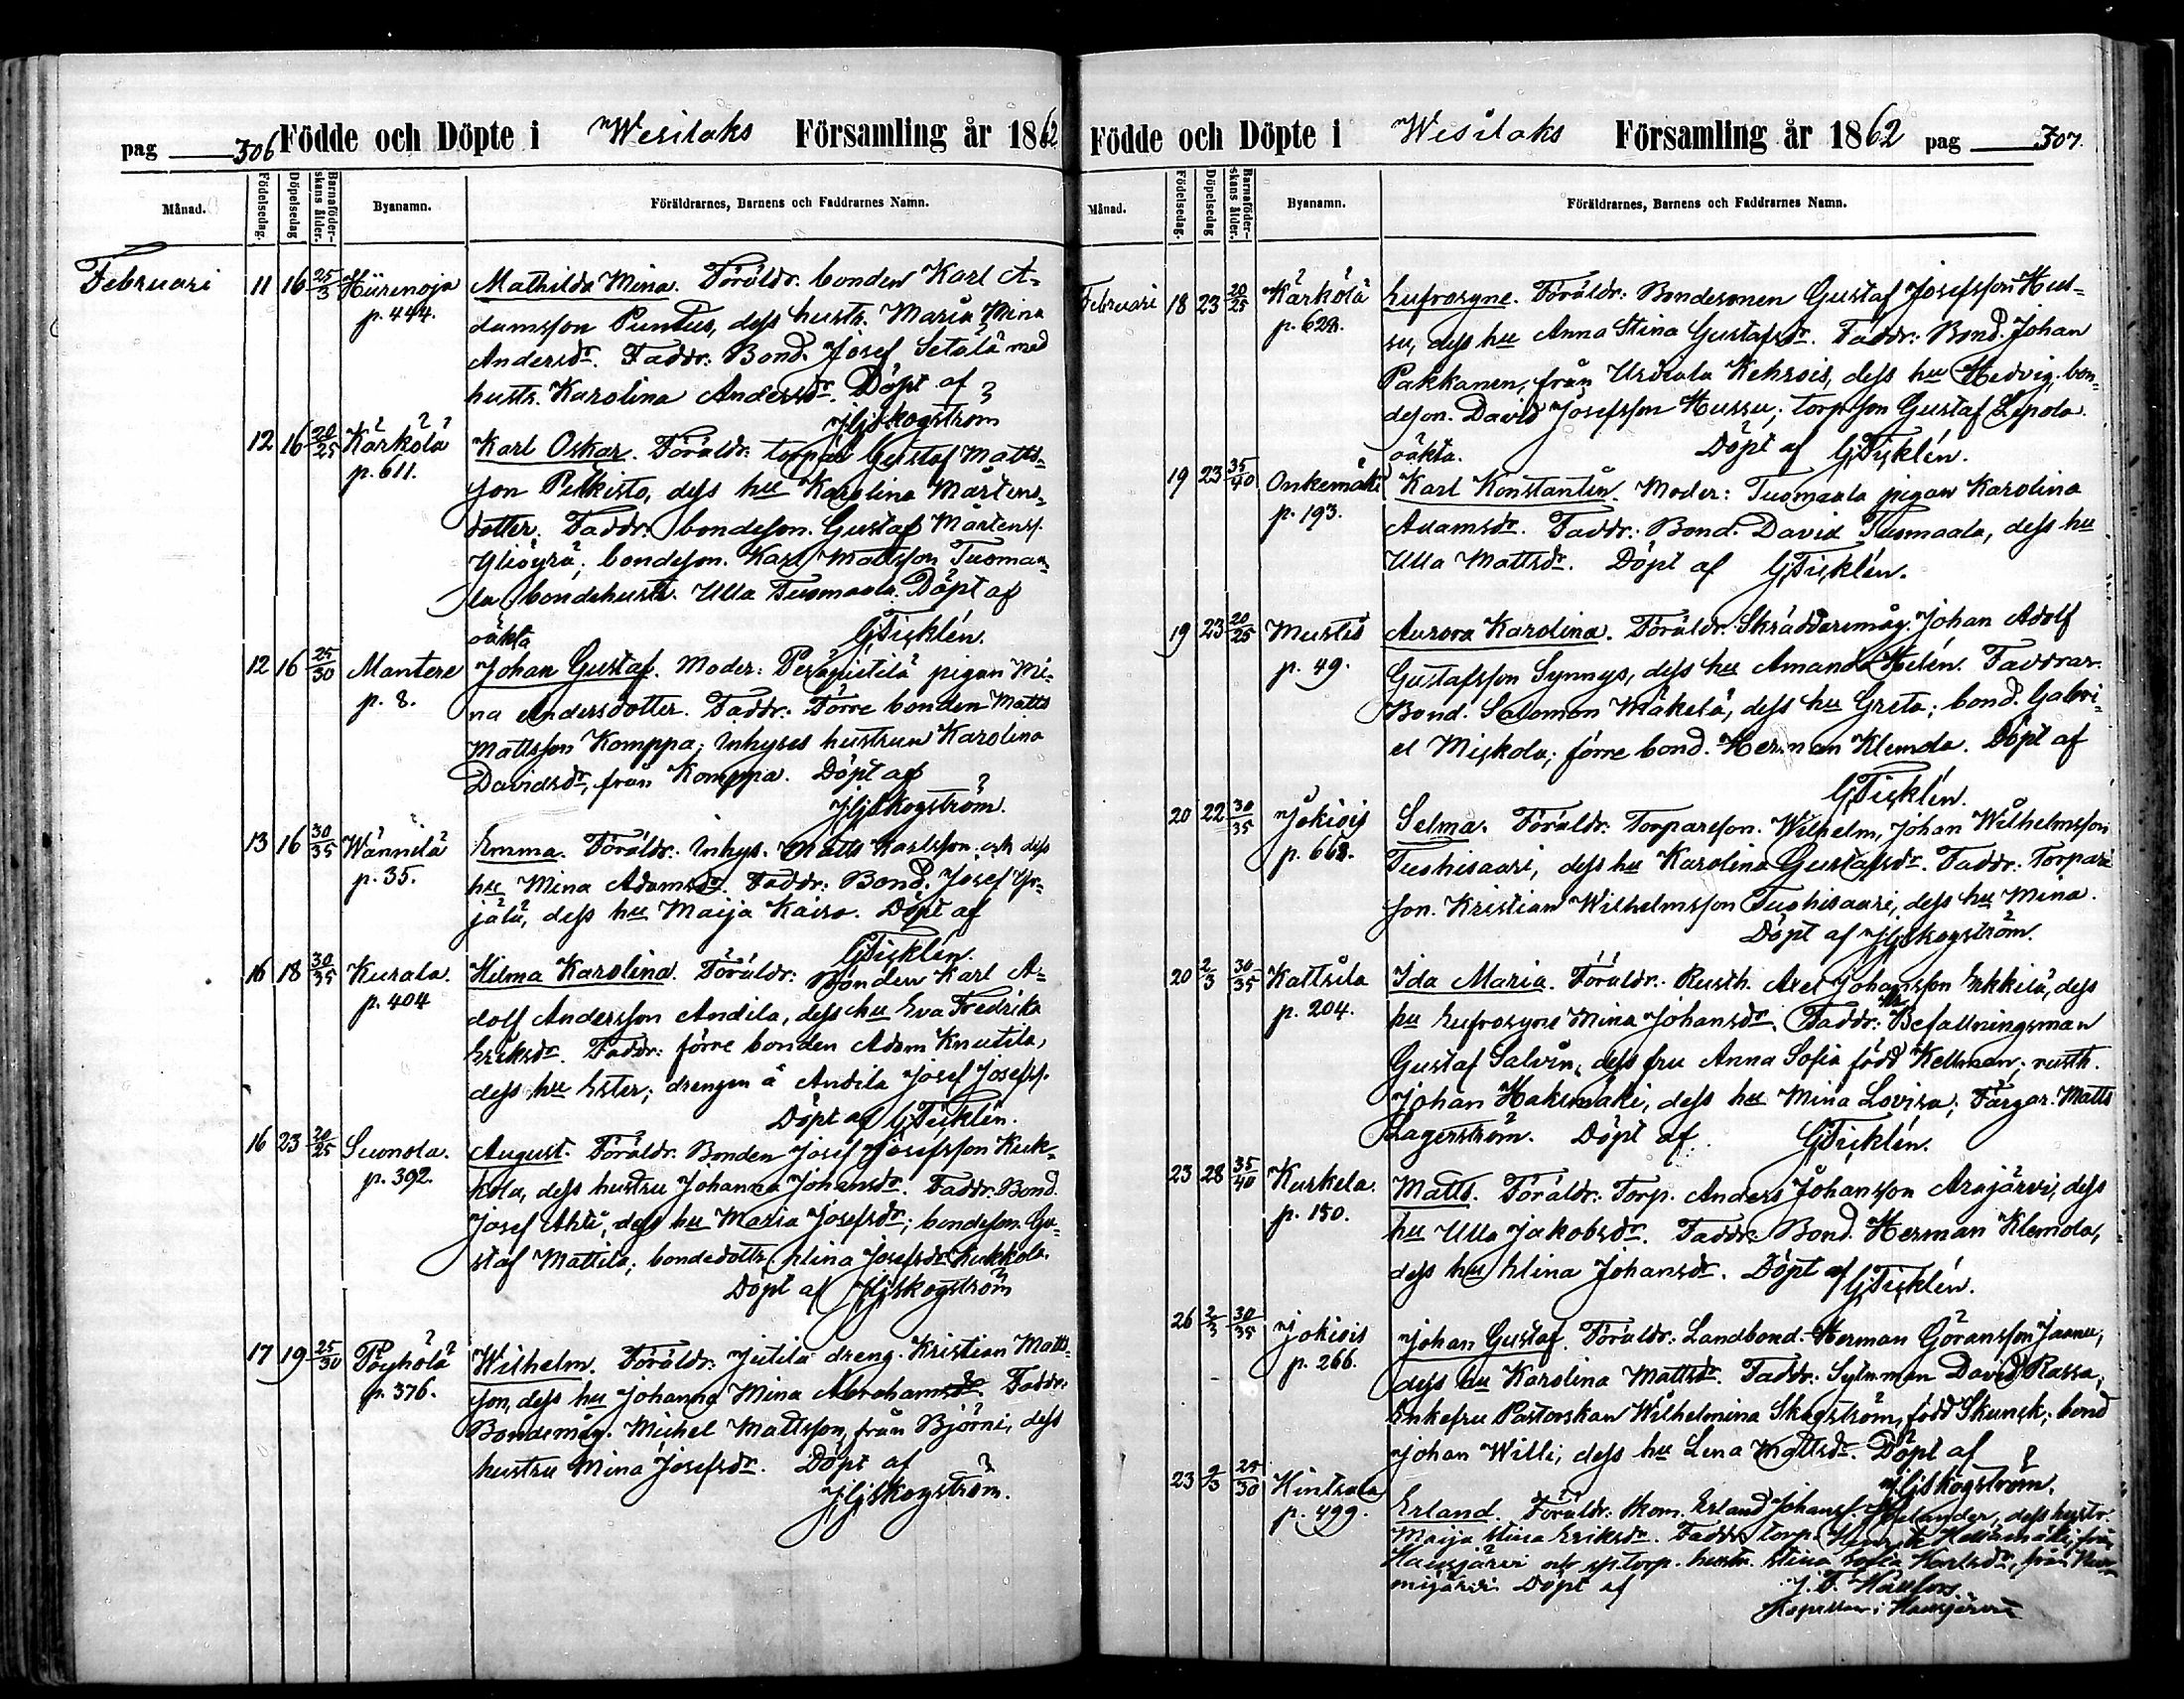 pag 306 Födde och Döpte i Wesilaks Församling år 1862
Månad. Födelsedag. Döpelsedag Barnaföder-skans ålder. Byanamn. Föräldrarnes, Barnens och Faddrarnes Namn.
Februari 11 16 25/3 Hiirenoja Mathilda Mina. Föräldr. bonden Karl A-
p. 444. damsson Puntus, dess hustr. Maria Mina
Andersdr. Faddr: Bond. Josef Setälä med
hustr. Karolina Andersdr. Döpt af
JGSkogström
12 16 20/25 Kärkölä Karl Oskar. Föräldr: torpar Gustaf Matts-
p. 611. son Pelkisto, dess hu Karolina Mårtens-
dotter. Faddr: bondeson. Gustaf Mårtenss.
Yliöyrä; bondeson. Karl Mattsson Tuomaa-
la, bondehustr. Ulla Tuomaala. Döpt af
GTicklén.
oäkta
12 16 25/30 Mantere Johan Gustaf. Moder: Peräpietilä pigan Mi-
p. 8. na Andersdotter. Faddr: Förre bonden Matts
Mattsson Komppa; Inhyses hustrun Karolina
Davidsdr, från Komppa. Döpt af
JGSkogström.
13 16 30/35 Wännilä Emma. Föräldr: Inhys. Matts Karlsson och dess
p. 35. hu Mina Adamsdr. Faddr: Bond. Josef Yr-
jälä, dess hu Maija Kaisa. Döpt af
GTicklén.
16 18 30/35 Kurala. Hilma Karolina. Föräldr: Bonden Karl A-
p. 404 dolf Andersson Andila, dess hu Eva Fredrika
Eriksdr. Faddr: förre bonden Adam Knutila,
dess hu Ester; drengen å Andila Josef Josefss.
Döpt af GTicklén.
16 23 20/25 Suonola. August. Föräldr. Bonden Josef Josefsson Kuk-
p. 392. kola, dess hustru Johanna Johansdr. Faddr. Bond.
Josef Ahti, dess hu Maria Josefsdr; bondeson. Gu-
staf Mattila; bondedottr. Elina Josefsdr Kukkola.
Döpt af JGSkogström
17 19 25/30 Pöyhölä Wilhelm. Föräldr: Jutila dreng. Kristian Matts-
p. 376. son, dess hu Johanna Mina Abrahamsdr. Faddr:
Bondemåg. Michel Mattsson, från Björni, dess
hustru Mina Josefsdr. Döpt af
JGSkogström.
Födde och Döpte i Wesilaks Församling år 1862 pag 307.
Månad. Födelsedag. Döpelsedag Barnaföder-skans ålder. Byanamn. Föräldrarnes, Barnens och Faddrarnes Namn.
Februari 18 23 20/25 Kärkölä Eufrosyne. Föräldr: Bondesonen Gustaf Josefsson Hus-
p. 622. su, dess hu Anna Stina Gustafsdr. Faddr: Bond. Johan
Pakkanen, från Urdiala Kehrois, dess hu Hedvig; bon-
deson. David Josefsson Hussu; torpson Gustaf Lepola.
Döpt af GTicklén.
oäkta.
19 23 35/40 Onkemäki Karl Konstantin. Moder: Tuomaala pigan Karolina
p. 193. Adamsdr. Faddr: Bond. David Tuomaala, dess hu
Ulla Mattsdr. Döpt af GTicklén.
19 23 20/25 Mustis Aurora Karolina. Föräldr: Skräddaremåg. Johan Adolf
p. 49. Gustafsson Synnys, dess hu Amanda Helén. Faddrar:
Bond. Salomon Mäkelä, dess hu Greta; bond. Gabri-
el Miskola; förre bond. Herman Klemola. Döpt af
GTicklén.
20 22 30/35 Jokiois Selma. Föräldr: Torpareson. Wilhelm Johan Wilhelmsson
p. 662. Tuohisaari, dess hu Karolina Gustafsdr. Faddr: Torpare
son. Kristian Wilhelmsson Tuohisaari, dess hu Mina.
Döpt af JGSkogström.
20 2/3 30/35 Kaltsila Ida Maria. Föräldr: Rusth. Axel Johansson Erkkilä, dess
p. 204. hu Eufrosyne Mina Johansdr. Faddr: Hr Befallningsman
Gustaf Salvin, dess fru Anna Sofia född Kellman; rusth.
Johan Hakemäki, dess hu Mina Lovisa; Färgar. Matts
Lagerström. Döpt af GTicklén.
23 28 35/40 Kurkela. Matts. Föräldr: Torp. Anders Johansson Arajärvi, dess
p. 150. hu Ulla Jakobsdr. Faddr: Bond. Herman Klemola,
dess hu Elina Johansdr. Döpt af GTicklén.
26 2/3 30/35 Jokiois Johan Gustaf. Föräldr: Landbond. Herman Göransson Jaanu,
p. 266. dess hu Karolina Mattsdr. Faddr: Sytn.man David Rassa,
Enkefru Pastorskan Wilhelmina Skogström, född Skunck; bond
Johan Willi, dess hu Lena Mattsdr. Döpt af
JGSkogström.
23 2/3 25/30 Hintsala Erland. Föräldr: Erland Johanss. Helander, dess hustr.
p. 499. Maija Stina Eriksdr. Faddr. torp. från
Hausjärvi och torp. hustr. Stina Sofia Karlsdr, från Nur-
mijärvi. Döpt af J. F.
Kapellan i Hausjärvi